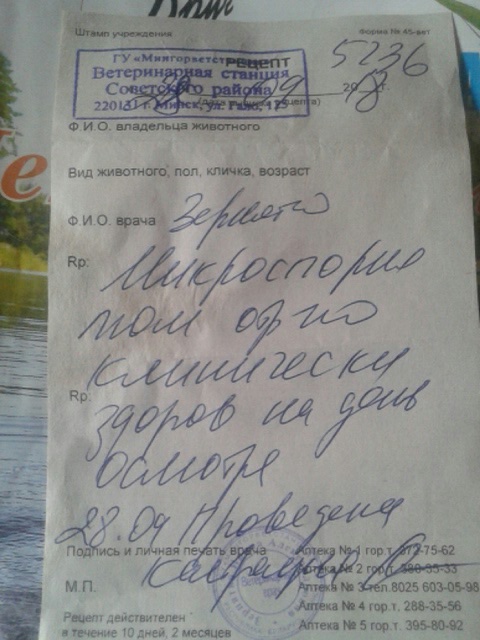 Штамп учреждения
Форма № 45-вет
ГУ «Мингорветст
РЕЦЕПТ
5236
Ветеринарная станция
Советского района
220131 г. Минск, ул. Гало, 125
28 09 2018
Ф.И.О. владельца животного
Вид животного, пол, кличка, возраст
Ф.И.О. врача
Rp: Микроспория
клинически
Rp: здоров на день
осмотра
28.09 Проведена
Подпись и личная печать врача
кастрация
М.П.
Рецепт действителен
в течение 10 дней, 2 месяцев
Аптека № 1 гор.т. 372-75-62
Аптека № 2 гор.т. 33
Аптека № 3 тел.8025 603-05-98
Аптека № 4 гор.т. 288-35-56
Аптека № 5 гор.т. 395-80-92